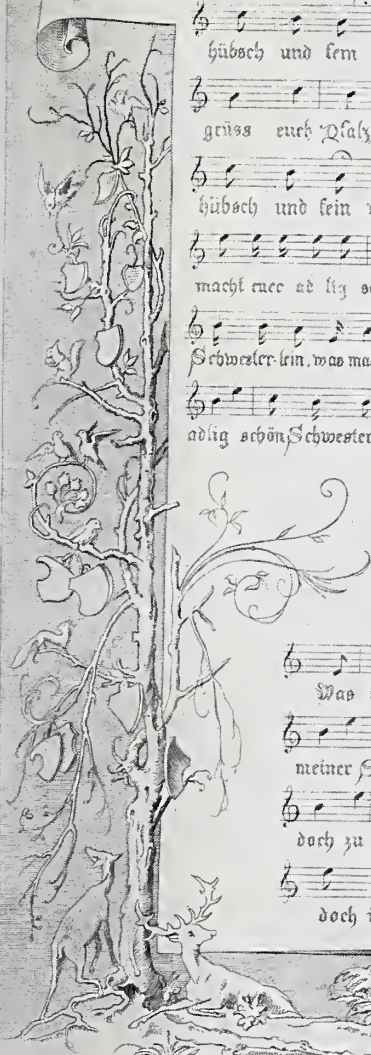 hübsch und fein
grüss euch Pfalz
hübsch und fein
macht euer ad lig
Schwester-lein, was ma
adlig schön Schwester
Was
meiner
doch zu
doch